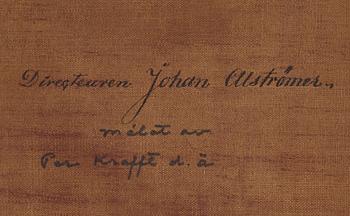 Directeuren Johan Alströmer.
målat av
Per Krafft d. ä